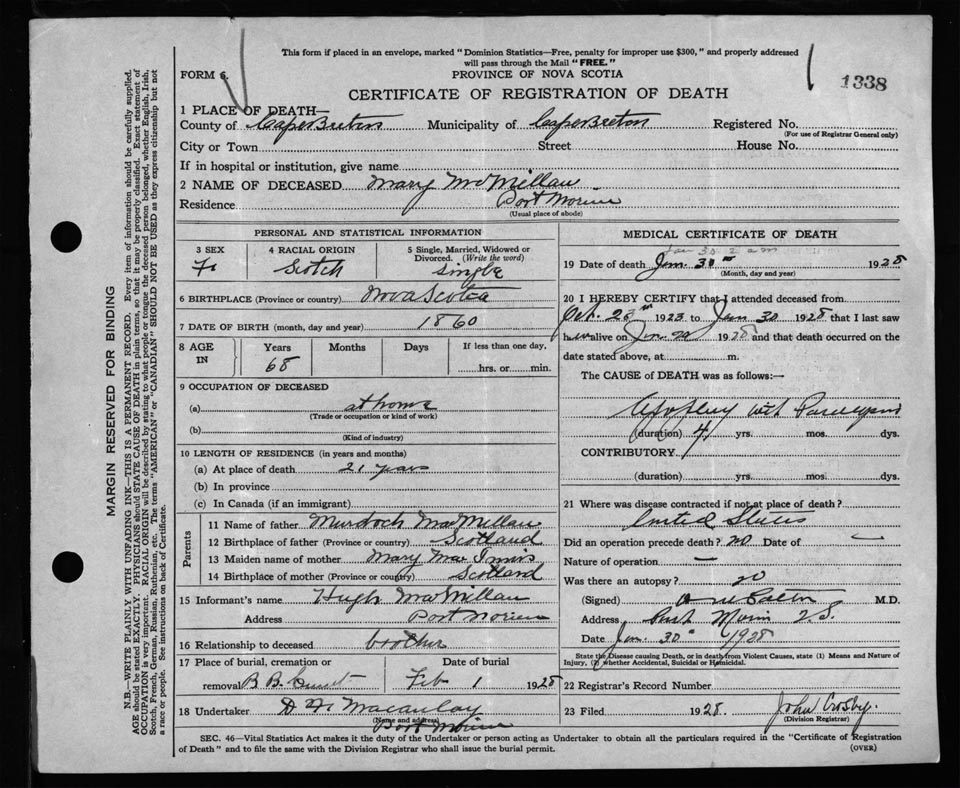 This form if placed in an envelope, marked "Dominion Statistics—Free, penalty for improper use $300," and properly addressed
will pass through the Mail "FREE."
FORM 6.
PROVINCE OF NOVA SCOTIA
1338
CERTIFICATE OF REGISTRATION OF DEATH
1 PLACE OF DEATH—
County of Cape Breton Municipality of Cape Breton Registered No.
(For use of Registrar General only)
City or Town Street House No.
If in hospital or institution, give name
2 NAME OF DECEASED Mary McMillan
Residence Port Morien
(Usual place of abode)
PERSONAL AND STATISTICAL INFORMATION
3 SEX 4 RACIAL ORIGIN 5 Single, Married, Widowed or
Divorced. (Write the word)
F. Scotch Single
6 BIRTHPLACE (Province or country) Nova Scotia
7 DATE OF BIRTH (month, day and year) 1860
8 AGE IN Years Months Days If less than one day,
68 hrs. or min.
9 OCCUPATION OF DECEASED
(a) at home
(Trade or occupation or kind of work)
(b)
(Kind of industry)
10 LENGTH OF RESIDENCE (in years and months)
(a) At place of death 21 years
(b) In province
(c) In Canada (if an immigrant)
Parents
11 Name of father Murdoch MacMillan
12 Birthplace of father (Province or country) Scotland
13 Maiden name of mother Mary MacInnis
14 Birthplace of mother (Province or country) Scotland
15 Informant's name Hugh MacMillan
Address Port Morien
16 Relationship to deceased brother
17 Place of burial, cremation or Date of burial
removal B. B. Feb 1 1928
18 Undertaker D. F. Macaulay
(Name and address)
Port Morien
MEDICAL CERTIFICATE OF DEATH
Jan 30 2 am
19 Date of death Jan. 30th 1928
(Month, day and year)
20 I HEREBY CERTIFY that I attended deceased from
Oct. 1923 to Jan 30 1928 that I last saw
her alive on Jan 1928 and that death occurred on the
date stated above, at m.
The CAUSE of DEATH was as follows:—
Apoplexy with Paralysis
(duration) 4 yrs. mos. dys.
CONTRIBUTORY
(duration) yrs. mos. dys.
21 Where was disease contracted if not at place of death?
United States
Did an operation precede death? no Date of —
Nature of operation —
Was there an autopsy? no
(Signed) M.D.
Address Port Morien N.S.
Date Jan. 30th 1928
State the Disease causing Death, or in death from Violent Causes, state (1) Means and Nature of
Injury, (2) whether Accidental, Suicidal or Homicidal.
22 Registrar's Record Number
23 Filed 1928. John Crosby.
(Division Registrar)
SEC. 46—Vital Statistics Act makes it the duty of the Undertaker or person acting as Undertaker to obtain all the particulars required in the "Certificate of Registration
of Death" and to file the same with the Division Registrar who shall issue the burial permit.
(OVER)
MARGIN RESERVED FOR BINDING
N.B.—WRITE PLAINLY WITH UNFADING INK—THIS IS A PERMANENT RECORD. Every item of information should be carefully supplied.
AGE should be stated EXACTLY. PHYSICIANS should STATE CAUSE OF DEATH in plain terms, so that it may be properly classified. Exact statement of
OCCUPATION is very important. RACIAL ORIGIN will be described by stating to what people or tongue the deceased person belonged, whether English, Irish,
Scotch, French, German, Russian, Ruthenian, etc. The terms "AMERICAN" or "CANADIAN" SHOULD NOT BE USED as they express citizenship but not
a race or people. See instructions on back of Certificate.